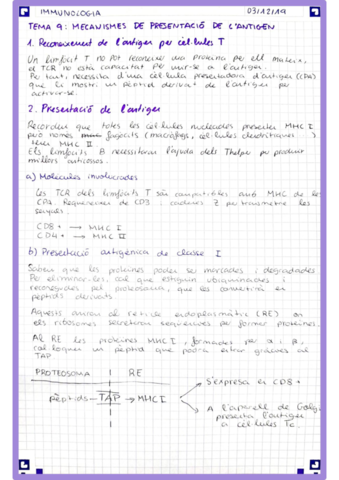 IMMUNOLOGIA 03/12/19
TEMA 9: MECANISMES DE PRESENTACIÓ DE L'ANTIGEN
1. Reconeixement de l'antigen per cèl·lules T
Un limfòcit T no pot reconeixer una proteïna per ell mateix,
el TCR no està capacitat per unir-se a l'antigen.
Per tant, necessita d'una cèl·lula presentadora d'antigen (CPA)
que li mostri un pèptid derivat de l'antigen per
activar-se.
2. Presentació de l'antigen
Recordem que totes les cèl·lules nucleades presenten MHC I,
però només fagòcits (macròfags, cèl·lules dendrítiques...)
tenen MHC II.
Els limfòcits B necessitaran l'ajuda dels Thelper per produir
millors anticossos.
a) Molècules involucrades
Les TCR dels limfòcits T són compatibles amb MHC de les
CPA. Requereixen de CD3 i cadenes Z per transmetre les
senyals.
CD8+ → MHC I
CD4+ → MHC II
b) Presentació antigènica de classe I
Sabem que les proteïnes poden ser marcades i degradades.
Per eliminar-les, cal que estiguin ubiquinades i
reconegudes pel proteosoma, que les convertirà en
pèptids derivats.
Aquests aniran al reticle endoplasmàtic (RE) on
els ribosomes secretaran seqüències per formar proteïnes.
Al RE les proteïnes MHC I, formades per α i β,
col·loquen un pèptid que podrà entrar gràcies al
TAP.
PROTEOSOMA RE
pèptids TAP → MHC I
S'expressa en CD8+
A l'aparell de Golgi
presenta l'antigen
a cèl·lules Tc.